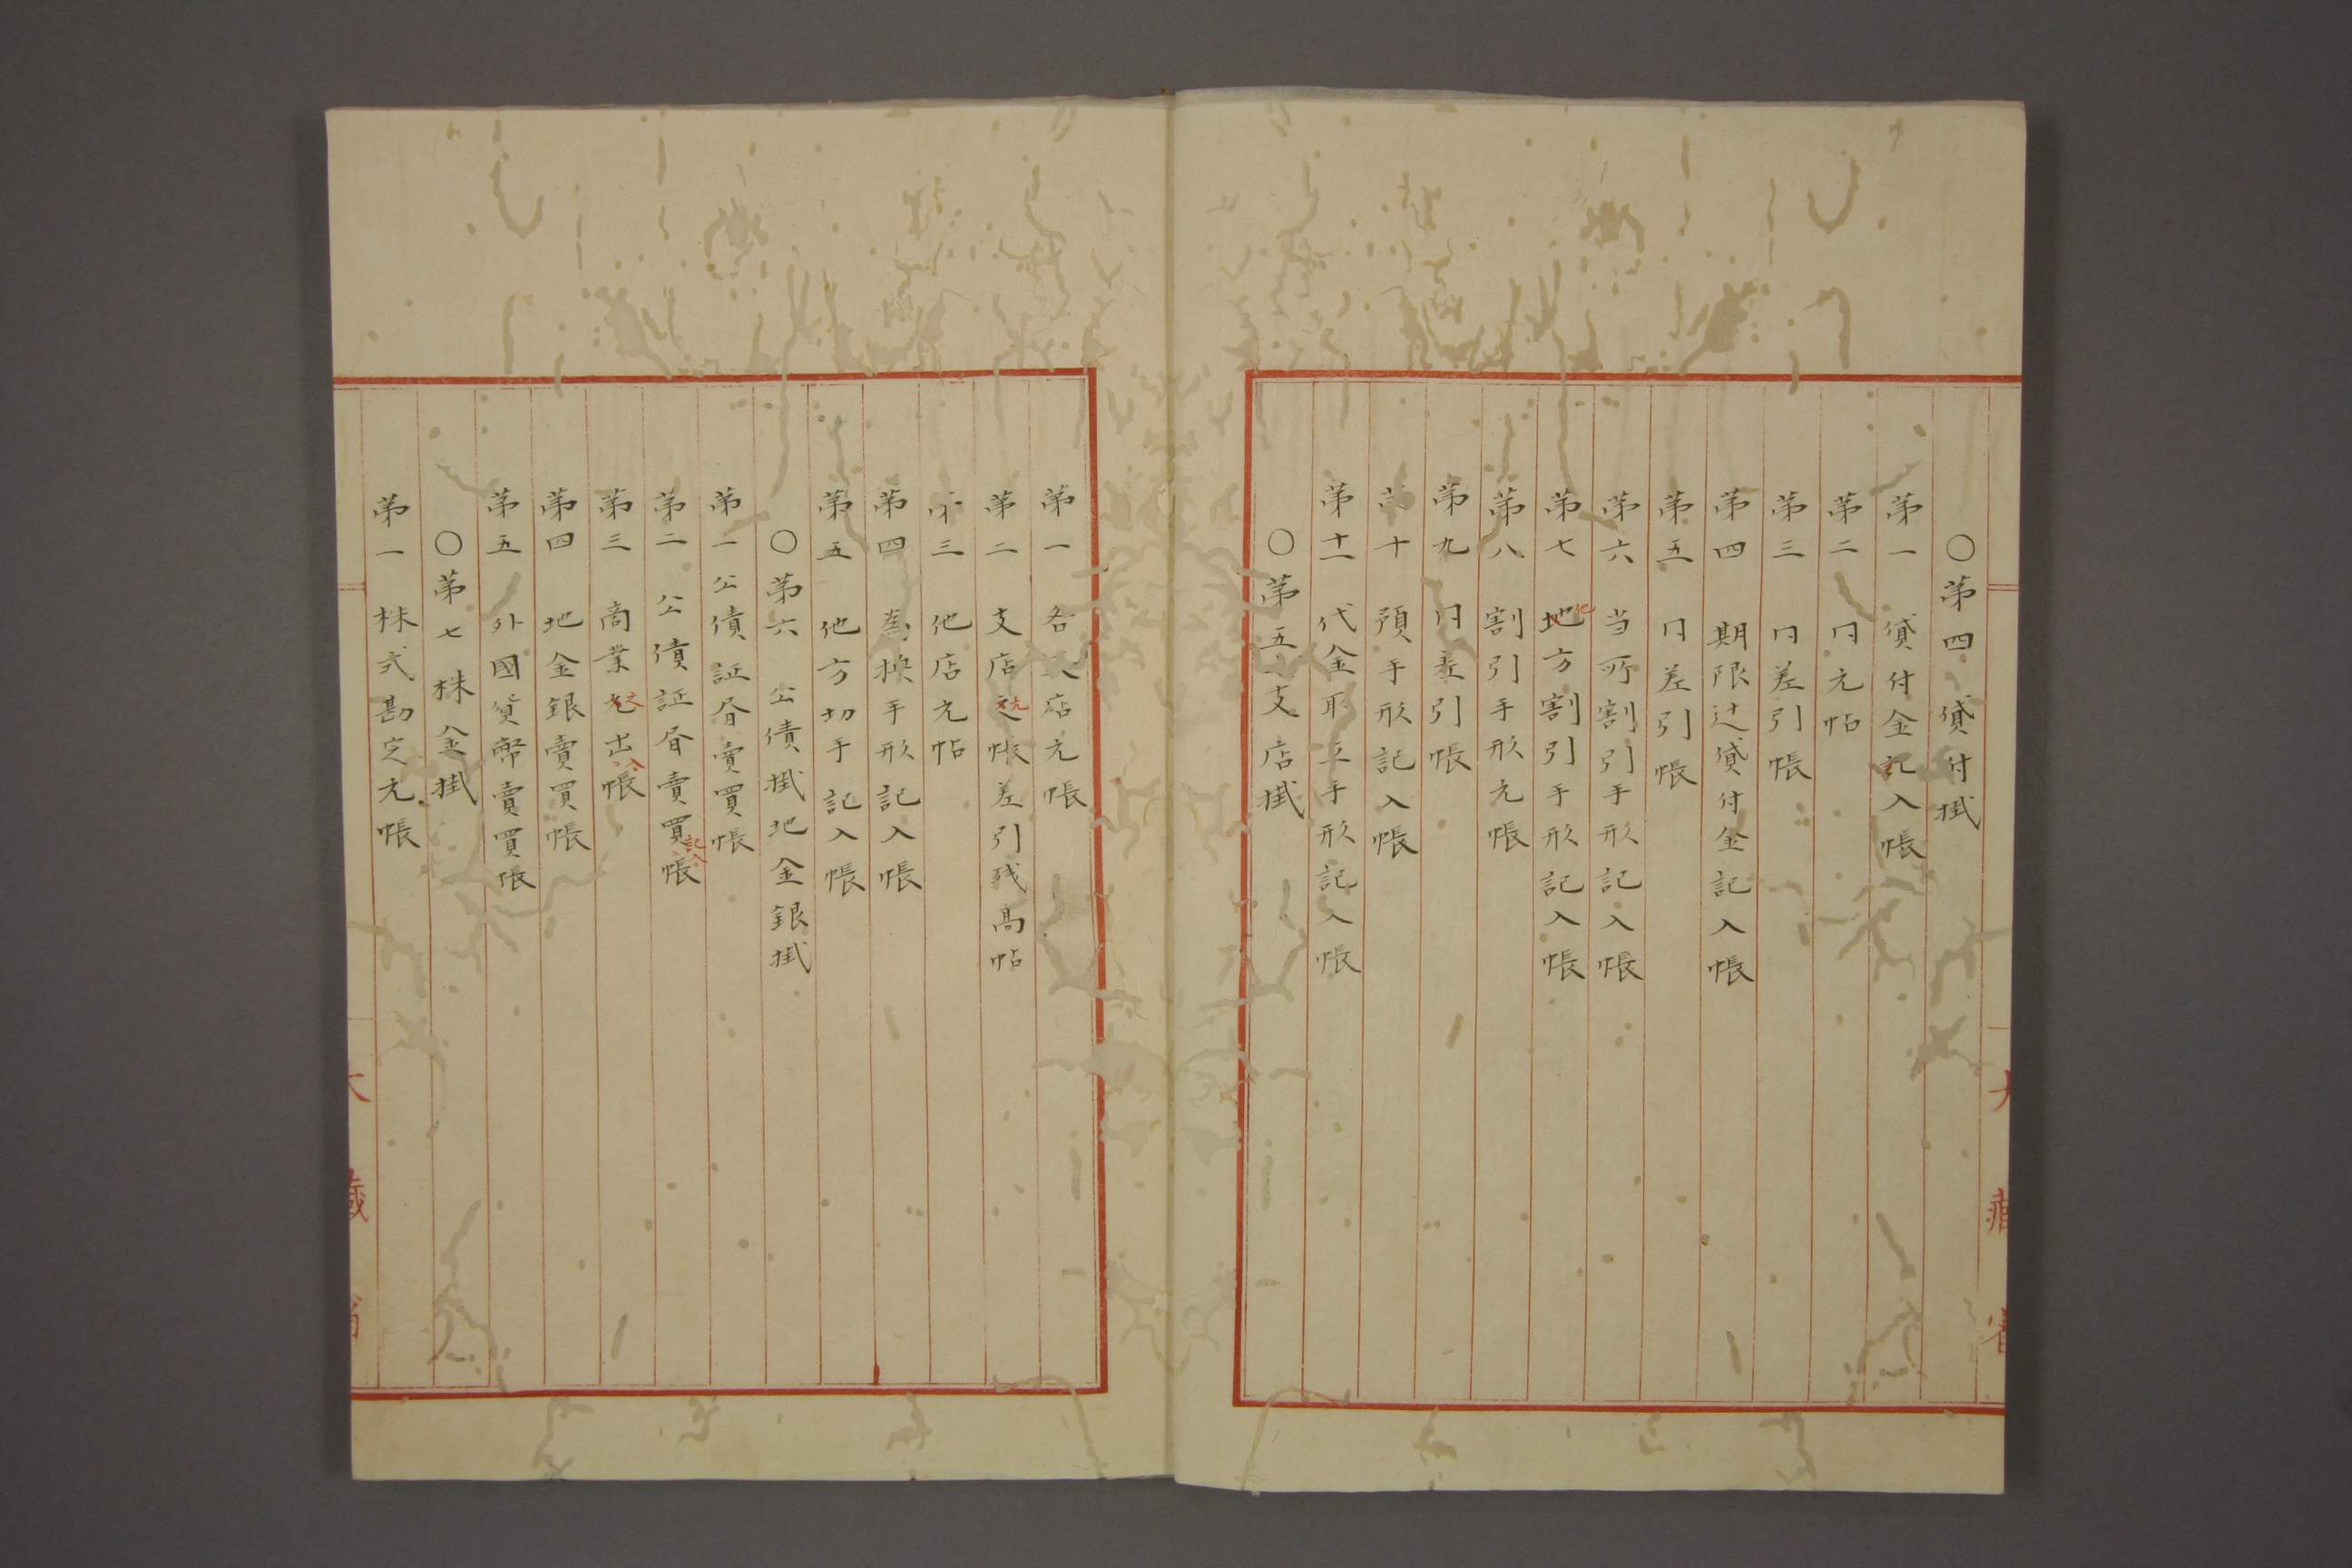 〇第四 貸付掛
第一 貸付金記入帳
第二 同元帖
第三 同差引帳
第四 期限辻貸付金記入帳
第五 同差引帳
第六 当所割引手形記入帳
第七 地方割引手形記入帳
他
第八 割引手形元帳
第九 同差引帳
第十 預手形記入帳
第十一 代金取立手形記入帳
〇第五 支店掛
大藏省
第一 各支店元帳
第二 支店之帳差引残高帖
元
第三 他店元帖
第四 為換手形記入帳
第五 他方切手記入帳
〇第六 公債掛地金銀掛
第一 公債証書賣買帳
第二 公債証書賣買帳
記入
第三 商業出帳
入
第四 地金銀賣買帳
第五 外國貨幣賣買帳
〇第七 株金掛
第一 株式勘定元帳
大藏省